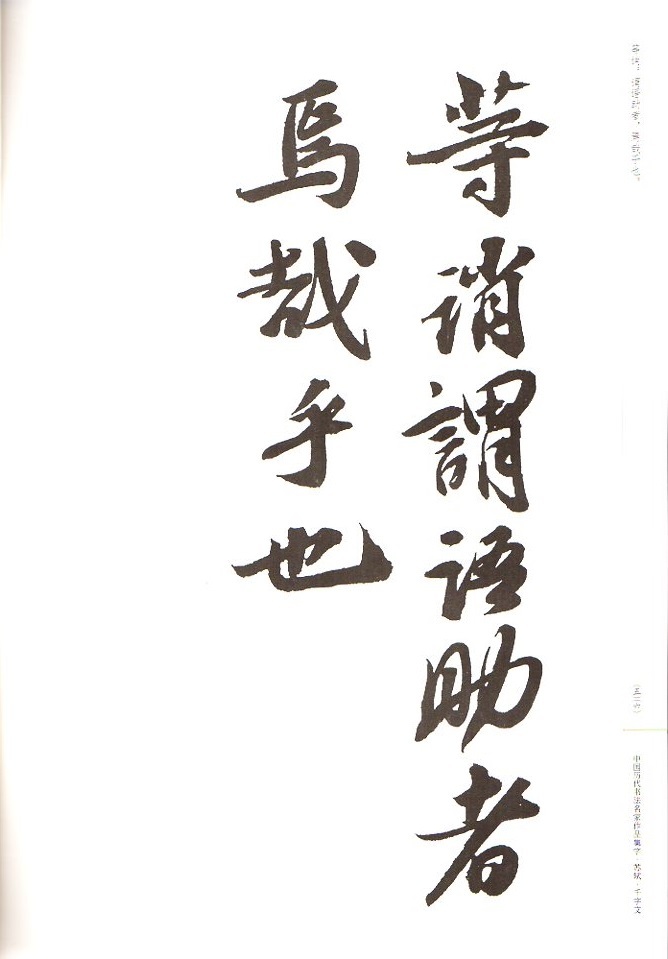 等诮：谓语助者，焉哉乎也。
等誚謂語助者
焉哉乎也
中国历代书法名家作品集字·苏轼·千字文